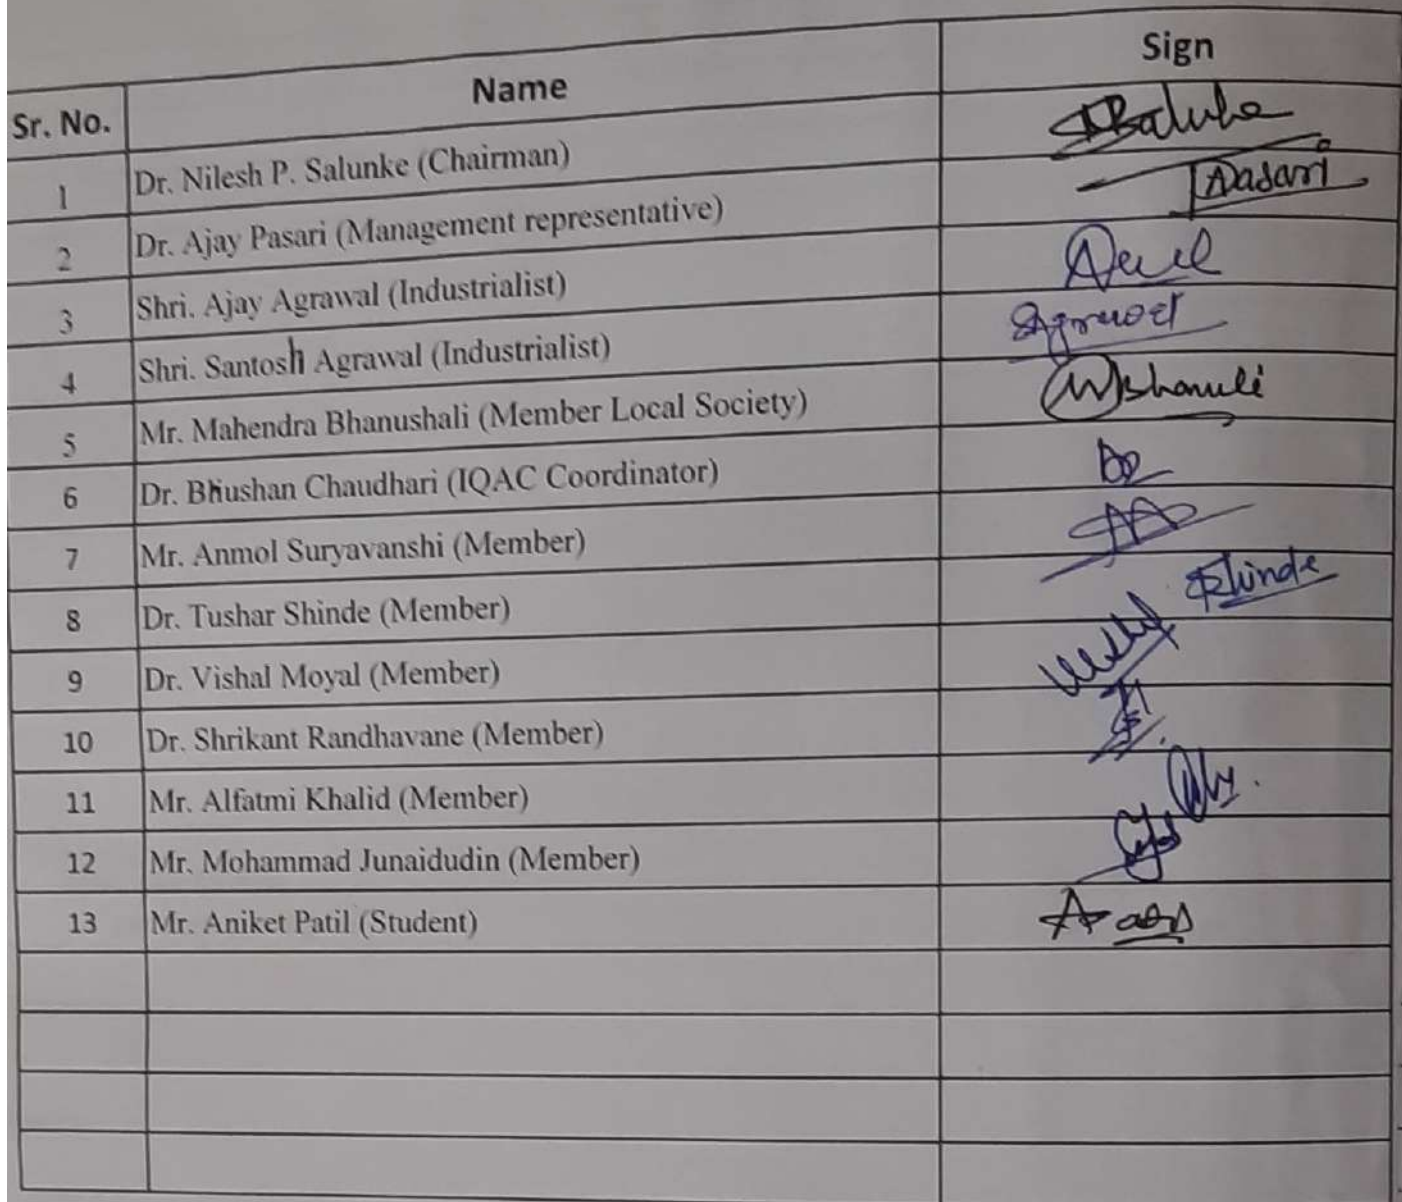 Sr. No. Name Sign
1 Dr. Nilesh P. Salunke (Chairman)
2 Dr. Ajay Pasari (Management representative) APasari
3 Shri. Ajay Agrawal (Industrialist)
4 Shri. Santosh Agrawal (Industrialist)
5 Mr. Mahendra Bhanushali (Member Local Society)
6 Dr. Bhushan Chaudhari (IQAC Coordinator)
7 Mr. Anmol Suryavanshi (Member)
8 Dr. Tushar Shinde (Member) Shinde
9 Dr. Vishal Moyal (Member)
10 Dr. Shrikant Randhavane (Member)
11 Mr. Alfatmi Khalid (Member)
12 Mr. Mohammad Junaidudin (Member)
13 Mr. Aniket Patil (Student)